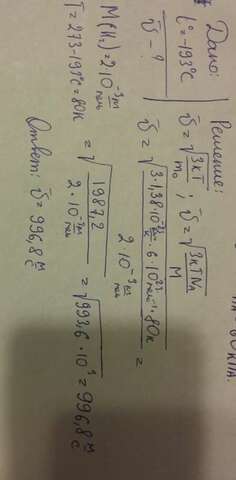 Дано:
t°=-193°C
v̄ - ?
M(H₂)=2·10⁻³ кг/моль
T=273-193°C=80K
Решение:
v̄=√(3kT/m₀); v̄=√(3kTNa/M)
v̄=√(3·1,38·10⁻²³·6·10²³ моль⁻¹·80K / 2·10⁻³ кг/моль) =
=√(1987,2 / 2·10⁻³ кг/моль) = √(993,6·10³) = 996,8 м/с
Ответ: v̄=996,8 м/с
60 кПа.